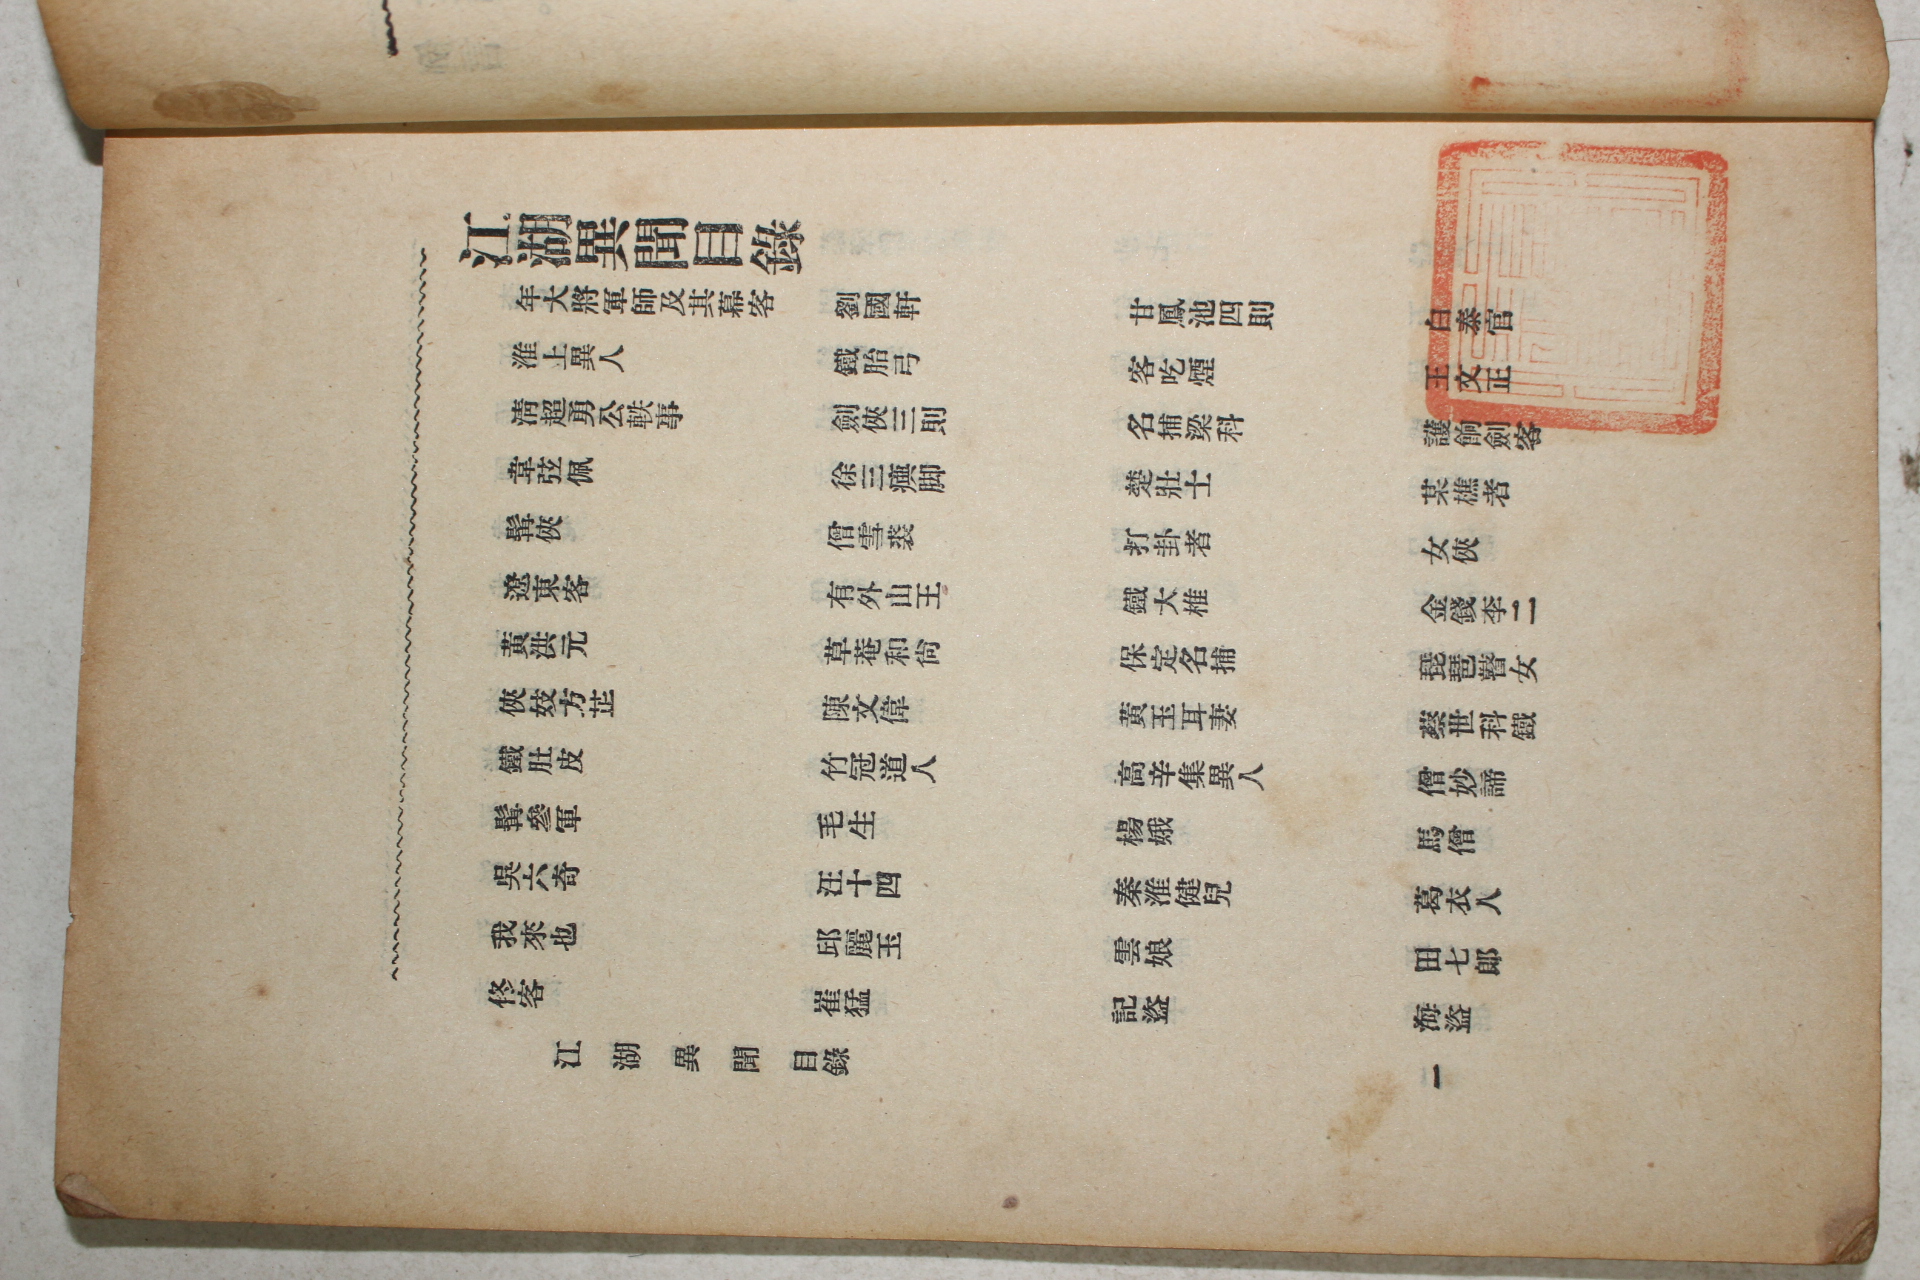 江湖異聞目錄
年大將軍師及其幕客　劉國軒　甘鳳池四則　白泰官
淮上異人　鐵胎弓　客吃煙　王文正
清超勇公軼事　劍俠三則　名捕梁科　護餉劍客
韋弦佩　楚壯士　某樵者
髯俠　僧雪裘　打卦者　女俠
遼東客　有外山王　鐵大椎　金錢李二
黃洪元　草菴和尙　保定名捕　琵琶瞽女
俠妓方芷　陳文偉　黃玉耳妻　蔡世科鐵
鐵肚皮　竹冠道人　高辛集異人　僧妙諦
髯參軍　毛生　楊娥　馬僧
吳六奇　汪十四　秦淮健兒　葛衣人
我來也　邱麗玉　雲娘　田七郞
佟客　崔猛　記盜　海盜
江湖異聞　目錄　一